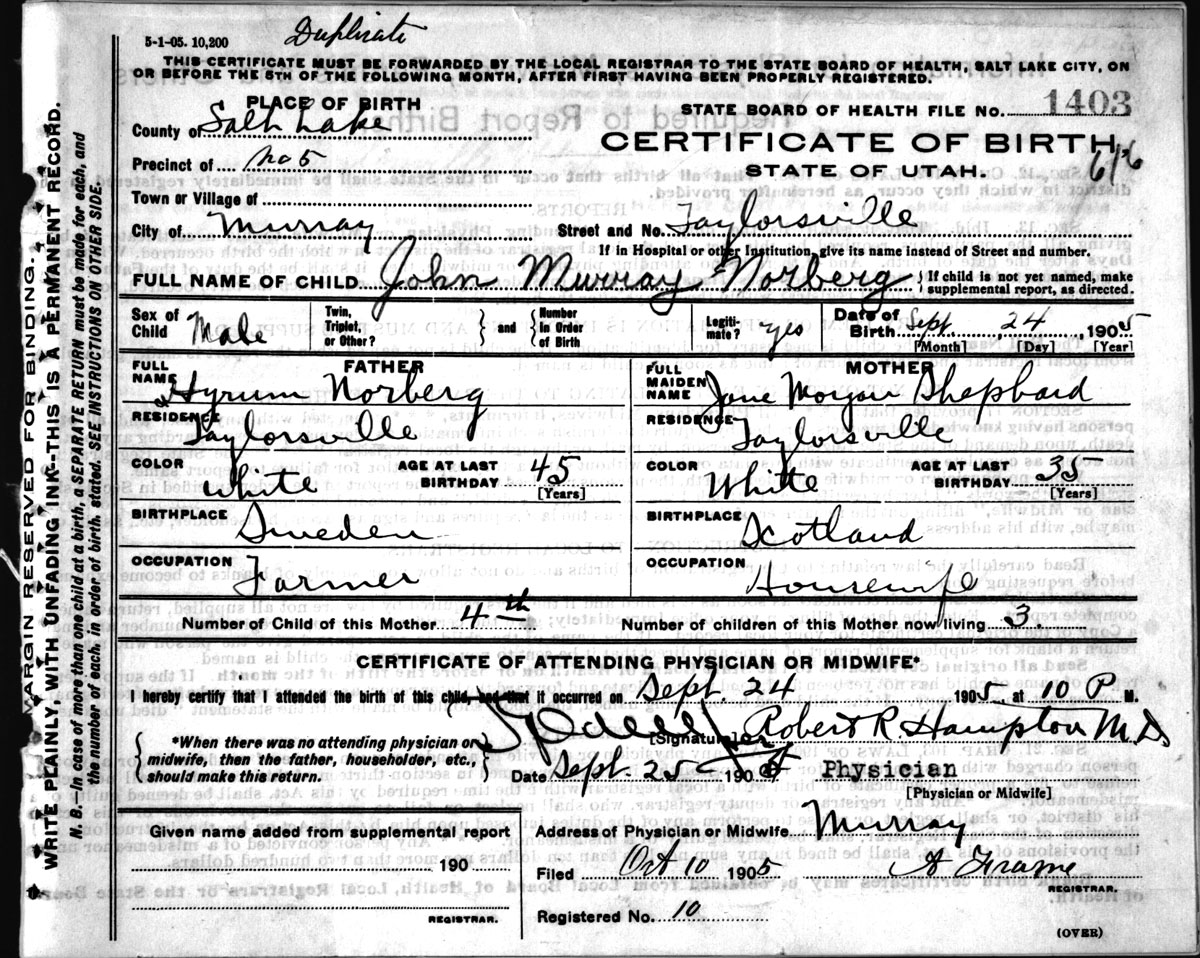 5-1-05. 10,200 Duplicate
THIS CERTIFICATE MUST BE FORWARDED BY THE LOCAL REGISTRAR TO THE STATE BOARD OF HEALTH, SALT LAKE CITY, ON
OR BEFORE THE 5TH OF THE FOLLOWING MONTH, AFTER FIRST HAVING BEEN PROPERLY REGISTERED.
PLACE OF BIRTH
STATE BOARD OF HEALTH FILE No. 1403
County of Salt Lake
CERTIFICATE OF BIRTH
Precinct of No 5
STATE OF UTAH.
Town or Village of
City of Murray Street and No. Taylorsville
If in Hospital or other Institution, give its name instead of Street and number.
FULL NAME OF CHILD John Murray Norberg { If child is not yet named, make
supplemental report, as directed.
Sex of Child Male Twin, Triplet, or Other? } and { Number in Order of Birth Legiti-mate? yes Date of Birth Sept 24, 1905
[Month] [Day] [Year]
FATHER
FULL NAME Hyrum Norberg
RESIDENCE Taylorsville
COLOR White AGE AT LAST BIRTHDAY 45
[Years]
BIRTHPLACE Sweden
OCCUPATION Farmer
MOTHER
FULL MAIDEN NAME Jane Morgan Shephard
RESIDENCE Taylorsville
COLOR White AGE AT LAST BIRTHDAY 35
[Years]
BIRTHPLACE Scotland
OCCUPATION Housewife
Number of Child of this Mother 4th Number of children of this Mother now living 3.
CERTIFICATE OF ATTENDING PHYSICIAN OR MIDWIFE*
I hereby certify that I attended the birth of this child, and that it occurred Sept. 24 1905 at 10 P M.
[Signature] Robert R. Hampton M.D
{ *When there was no attending physician or
midwife, then the father, householder, etc.,
should make this return. }
Date Sept. 25 190 Physician
[Physician or Midwife]
Given name added from supplemental report
190
REGISTRAR.
Address of Physician or Midwife Murray
Filed Oct 10 1905 A Frame
REGISTRAR.
Registered No. 10
(OVER)
MARGIN RESERVED FOR BINDING.
WRITE PLAINLY, WITH UNFADING INK—THIS IS A PERMANENT RECORD.
N. B.—In case of more than one child at a birth, a SEPARATE RETURN must be made for each, and
the number of each, in order of birth, stated. SEE INSTRUCTIONS ON OTHER SIDE.